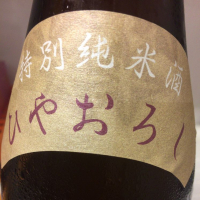 特別純米酒
ひやおろし